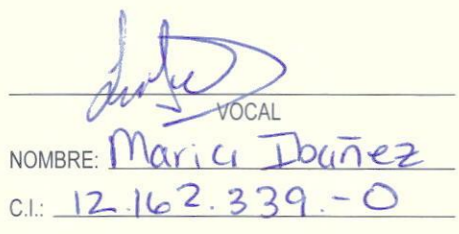 VOCAL
NOMBRE: Maria Ibañez
C.I.: 12.162.339.-0